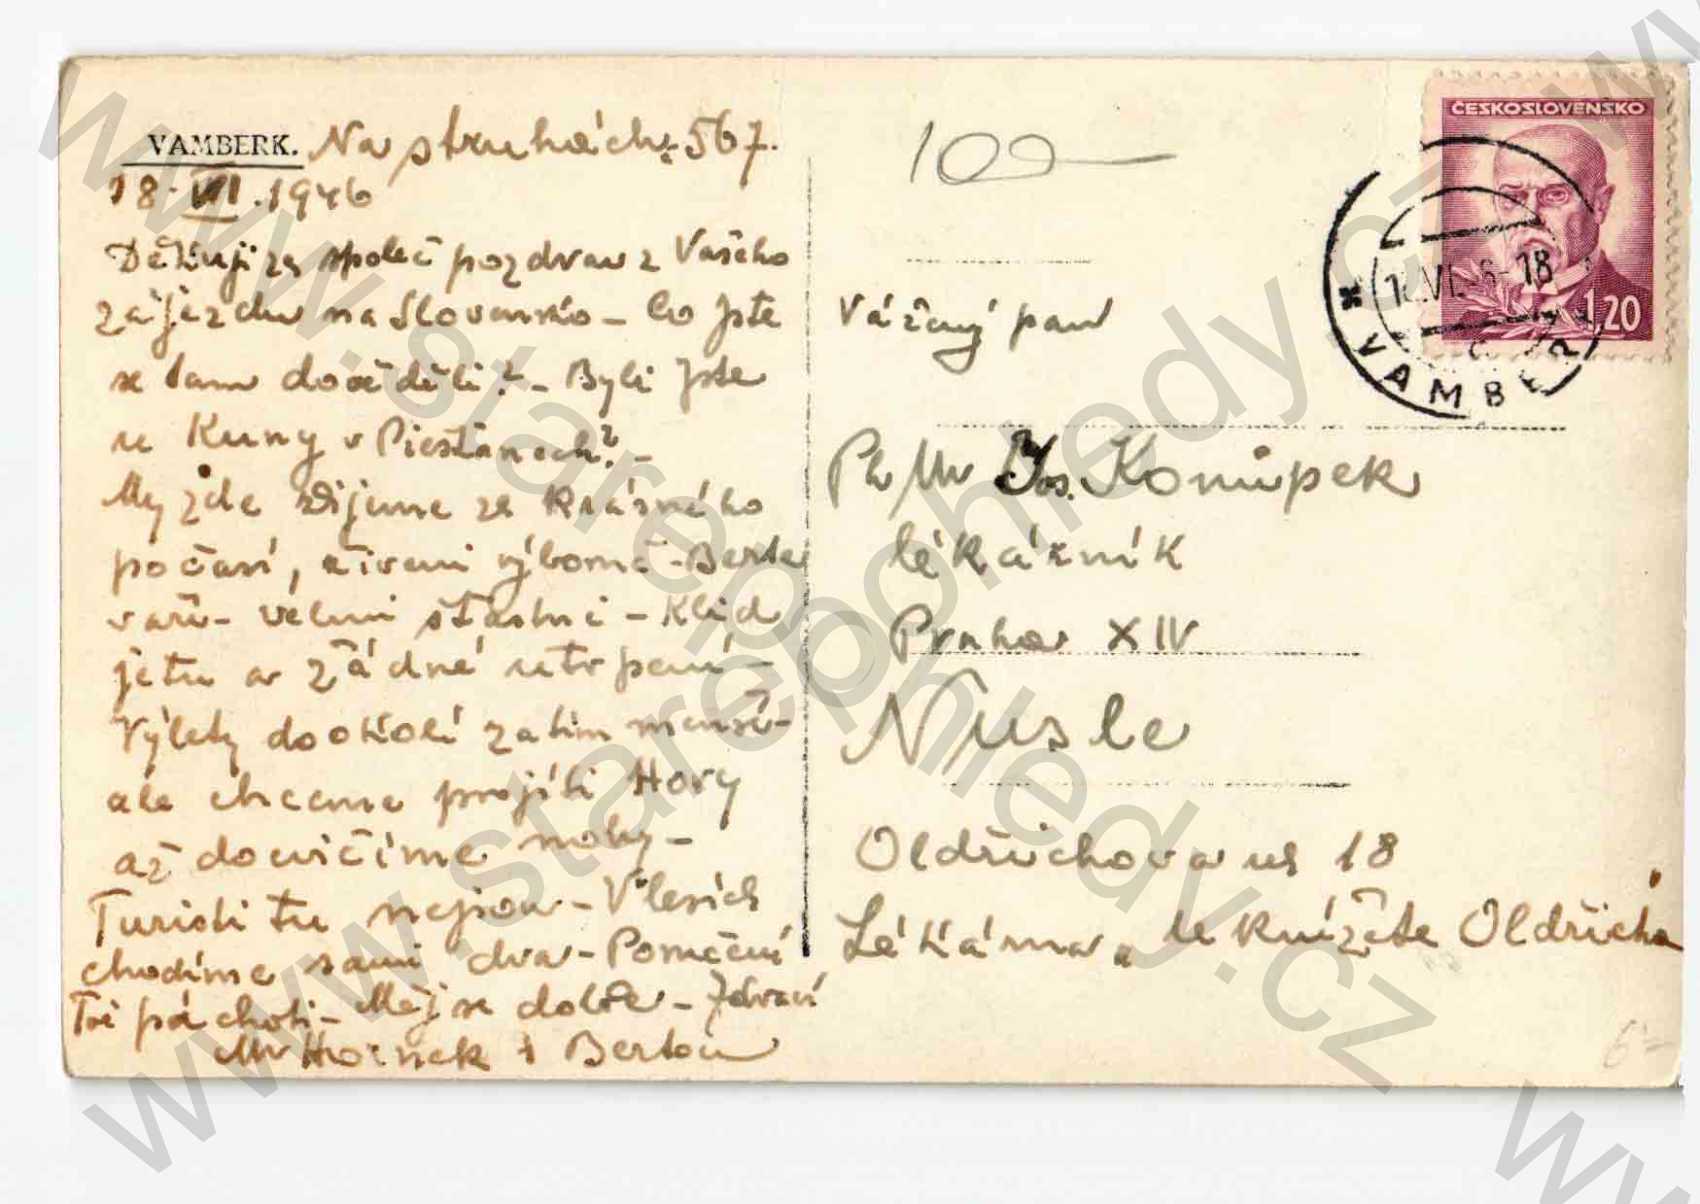 VAMBERK. Na struhách: 567.
18. VII. 1946
Děkuji za společ pozdrav z Vašeho
zájezdu na Slovensko – Co jste
se tam dověděli? – Byli jste
u Kuny v Piešťanech? –
My zde žijeme za krásného
počasí, živeni výborně – Berta
vaří – velmi šťastni – Klid
je tu a žádné utrpení –
Výlety do okolí zatím menší –
ale chceme projíti Hory
až docvičíme nohy –
Turisti tu nejsou – V lesích
chodíme sami dva – Poručení
Tvé pí choti – Měj se dobře – Zdraví
Hocnek i Berta
100
ČESKOSLOVENSKO
1,20
VI. 46-18
VAMBERK
Vážený pan
Ph Mr Jos. Konůpek
lékárník
Praha XIV
Nusle
Oldřichova ul 18
Lékárna „U knížete Oldřicha
6-
www.starepohledy.cz
www.starepohledy.cz